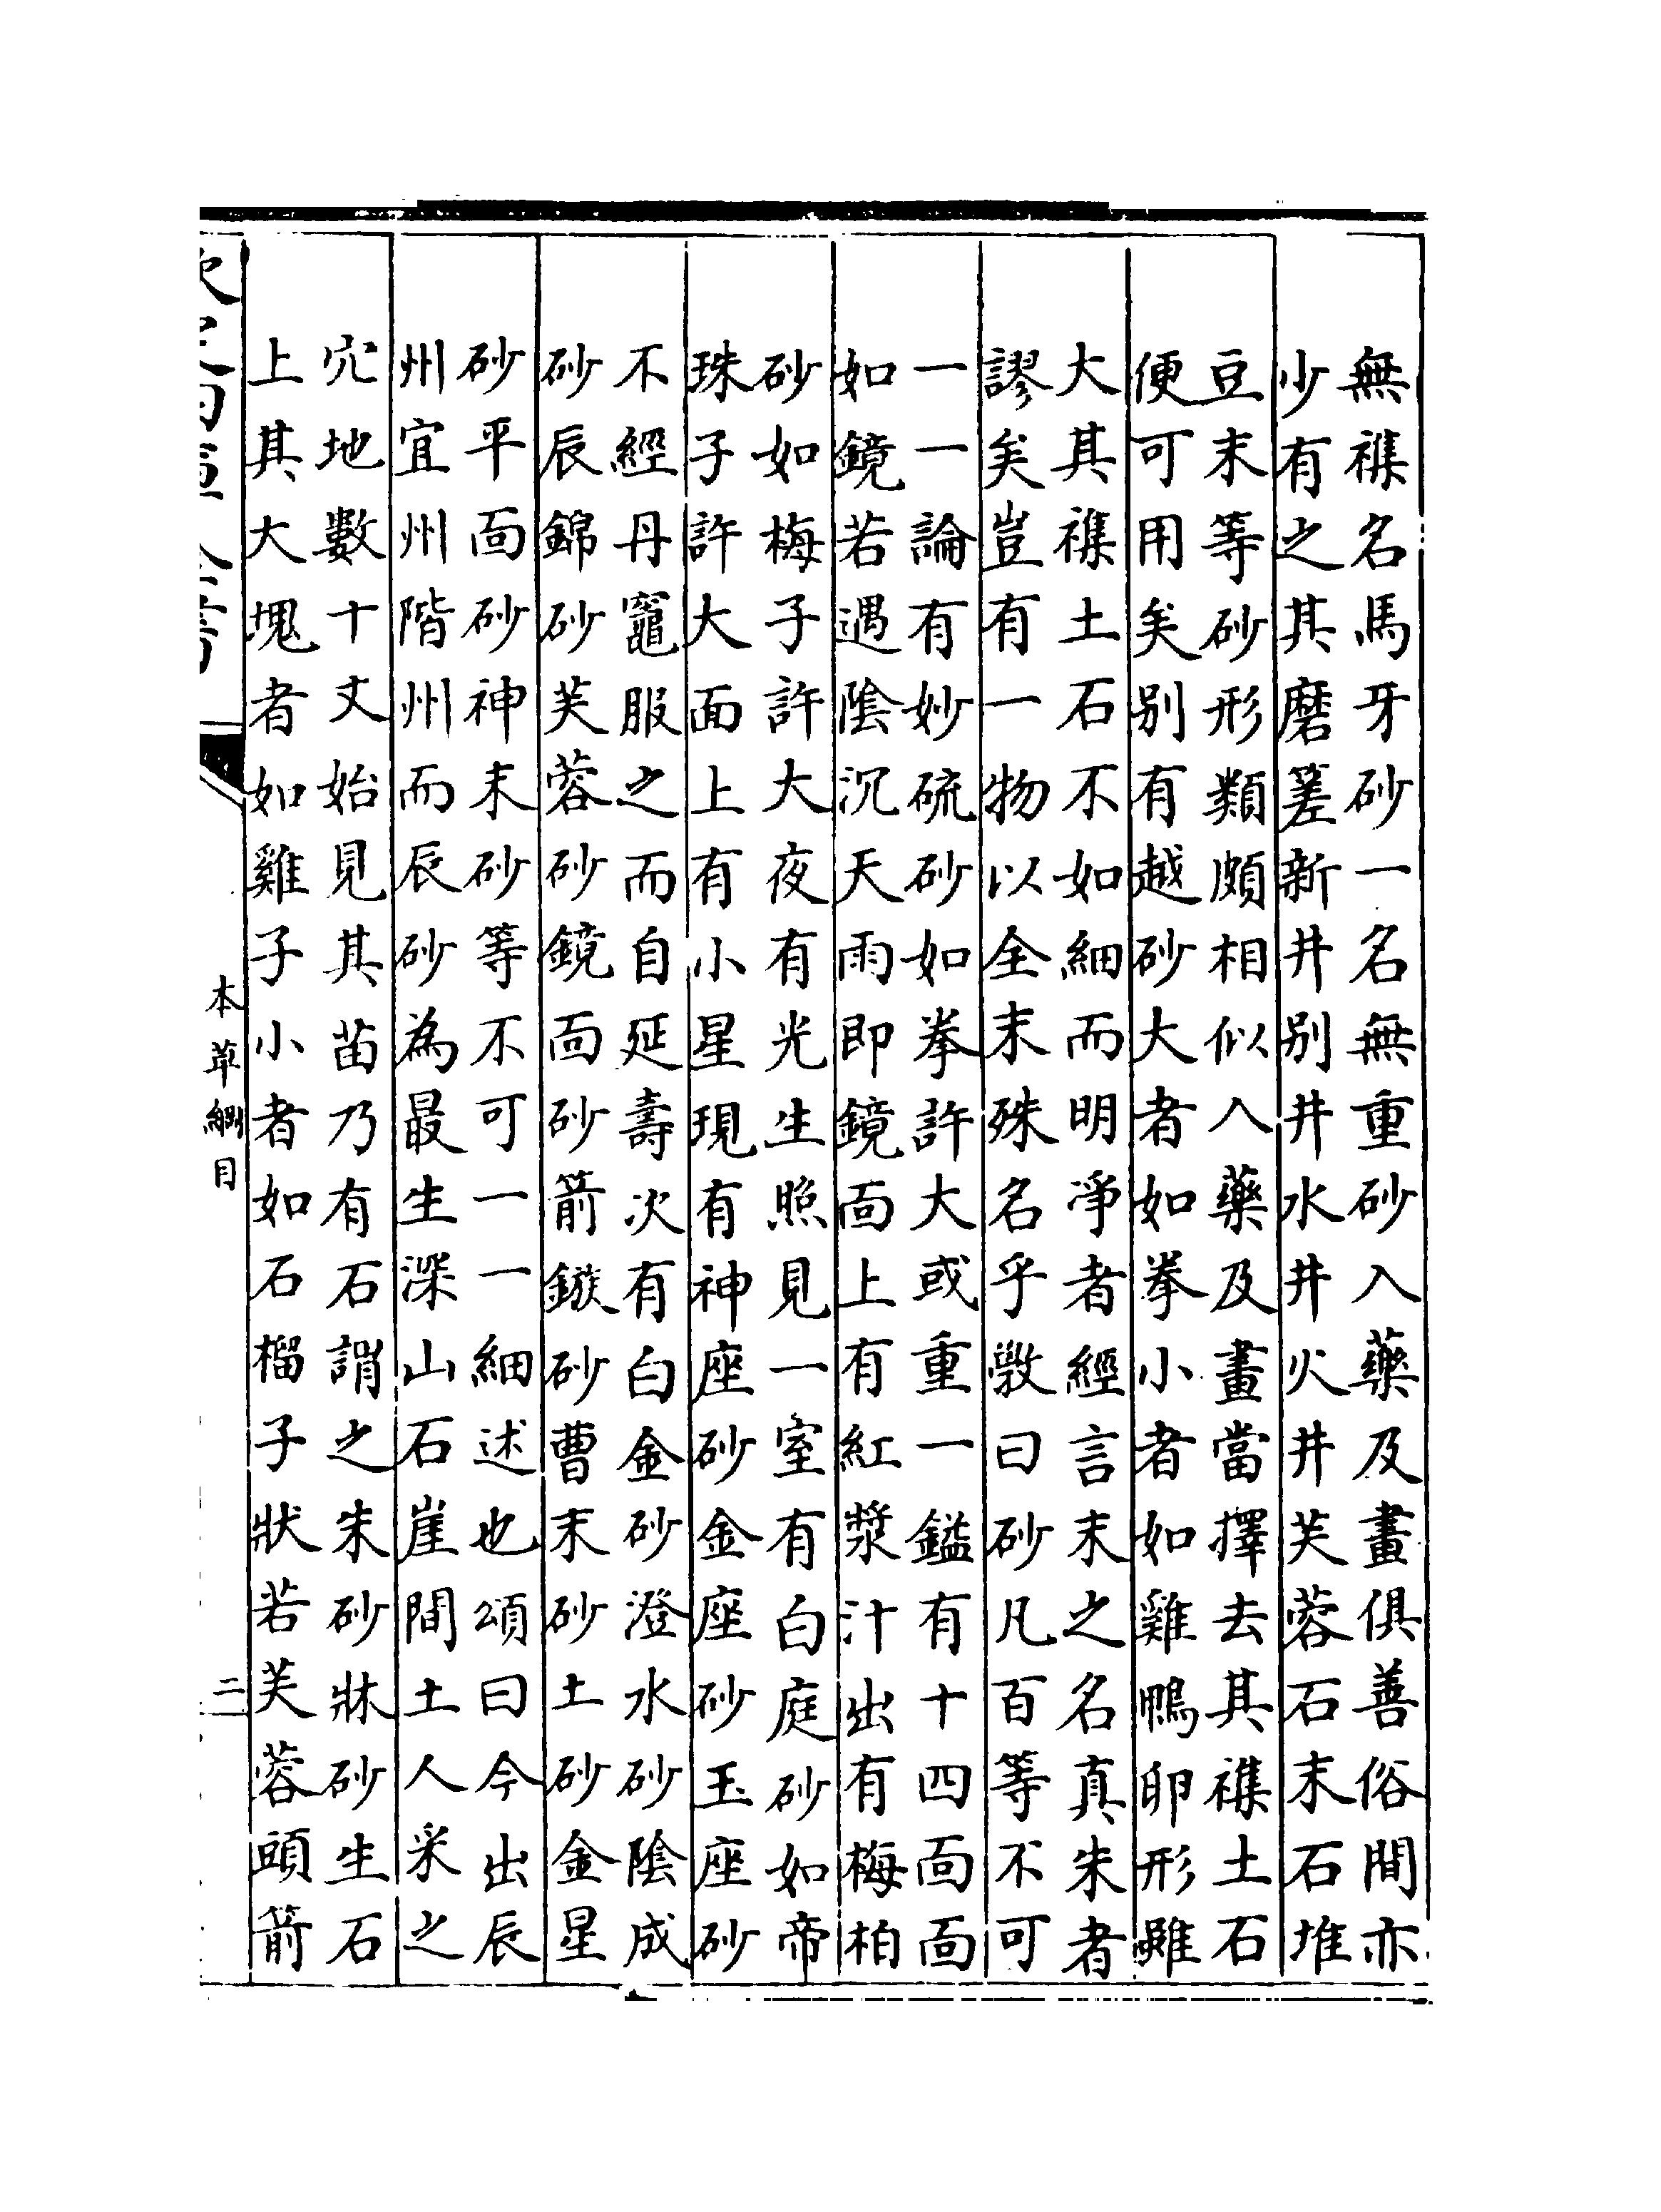 無襍名馬牙砂一名無重砂入藥及畫俱善俗間亦
少有之其磨䃀新井别井水井火井芙蓉石末石堆
豆末等砂形類頗相似入藥及畫當擇去其襍土石
便可用矣别有越砂大者如拳小者如雞鴨卵形雖
大其襍土石不如細而明凈者經言末之名真朱者
謬矣豈有一物以全末殊名乎斆曰砂凡百等不可
一一論有妙硫砂如拳許大或重一鎰有十四靣靣
如鏡若遇陰沉天雨即鏡靣上有紅漿汁出有梅柏
砂如梅子許大夜有光生照見一室有白庭砂如帝
珠子許大面上有小星現有神座砂金座砂玉座砂
不經丹竈服之而自延壽次有白金砂澄水砂陰成
砂辰錦砂芙蓉砂鏡靣砂箭鏃砂曹末砂土砂金星
砂平靣砂神末砂等不可一一細述也頌曰今出辰
州宜州階州而辰砂為最生深山石崖間土人采之
穴地數十丈始見其苗乃有石謂之朱砂牀砂生石
上其大塊者如雞子小者如石榴子狀若芙蓉頭箭
本草綱目
二